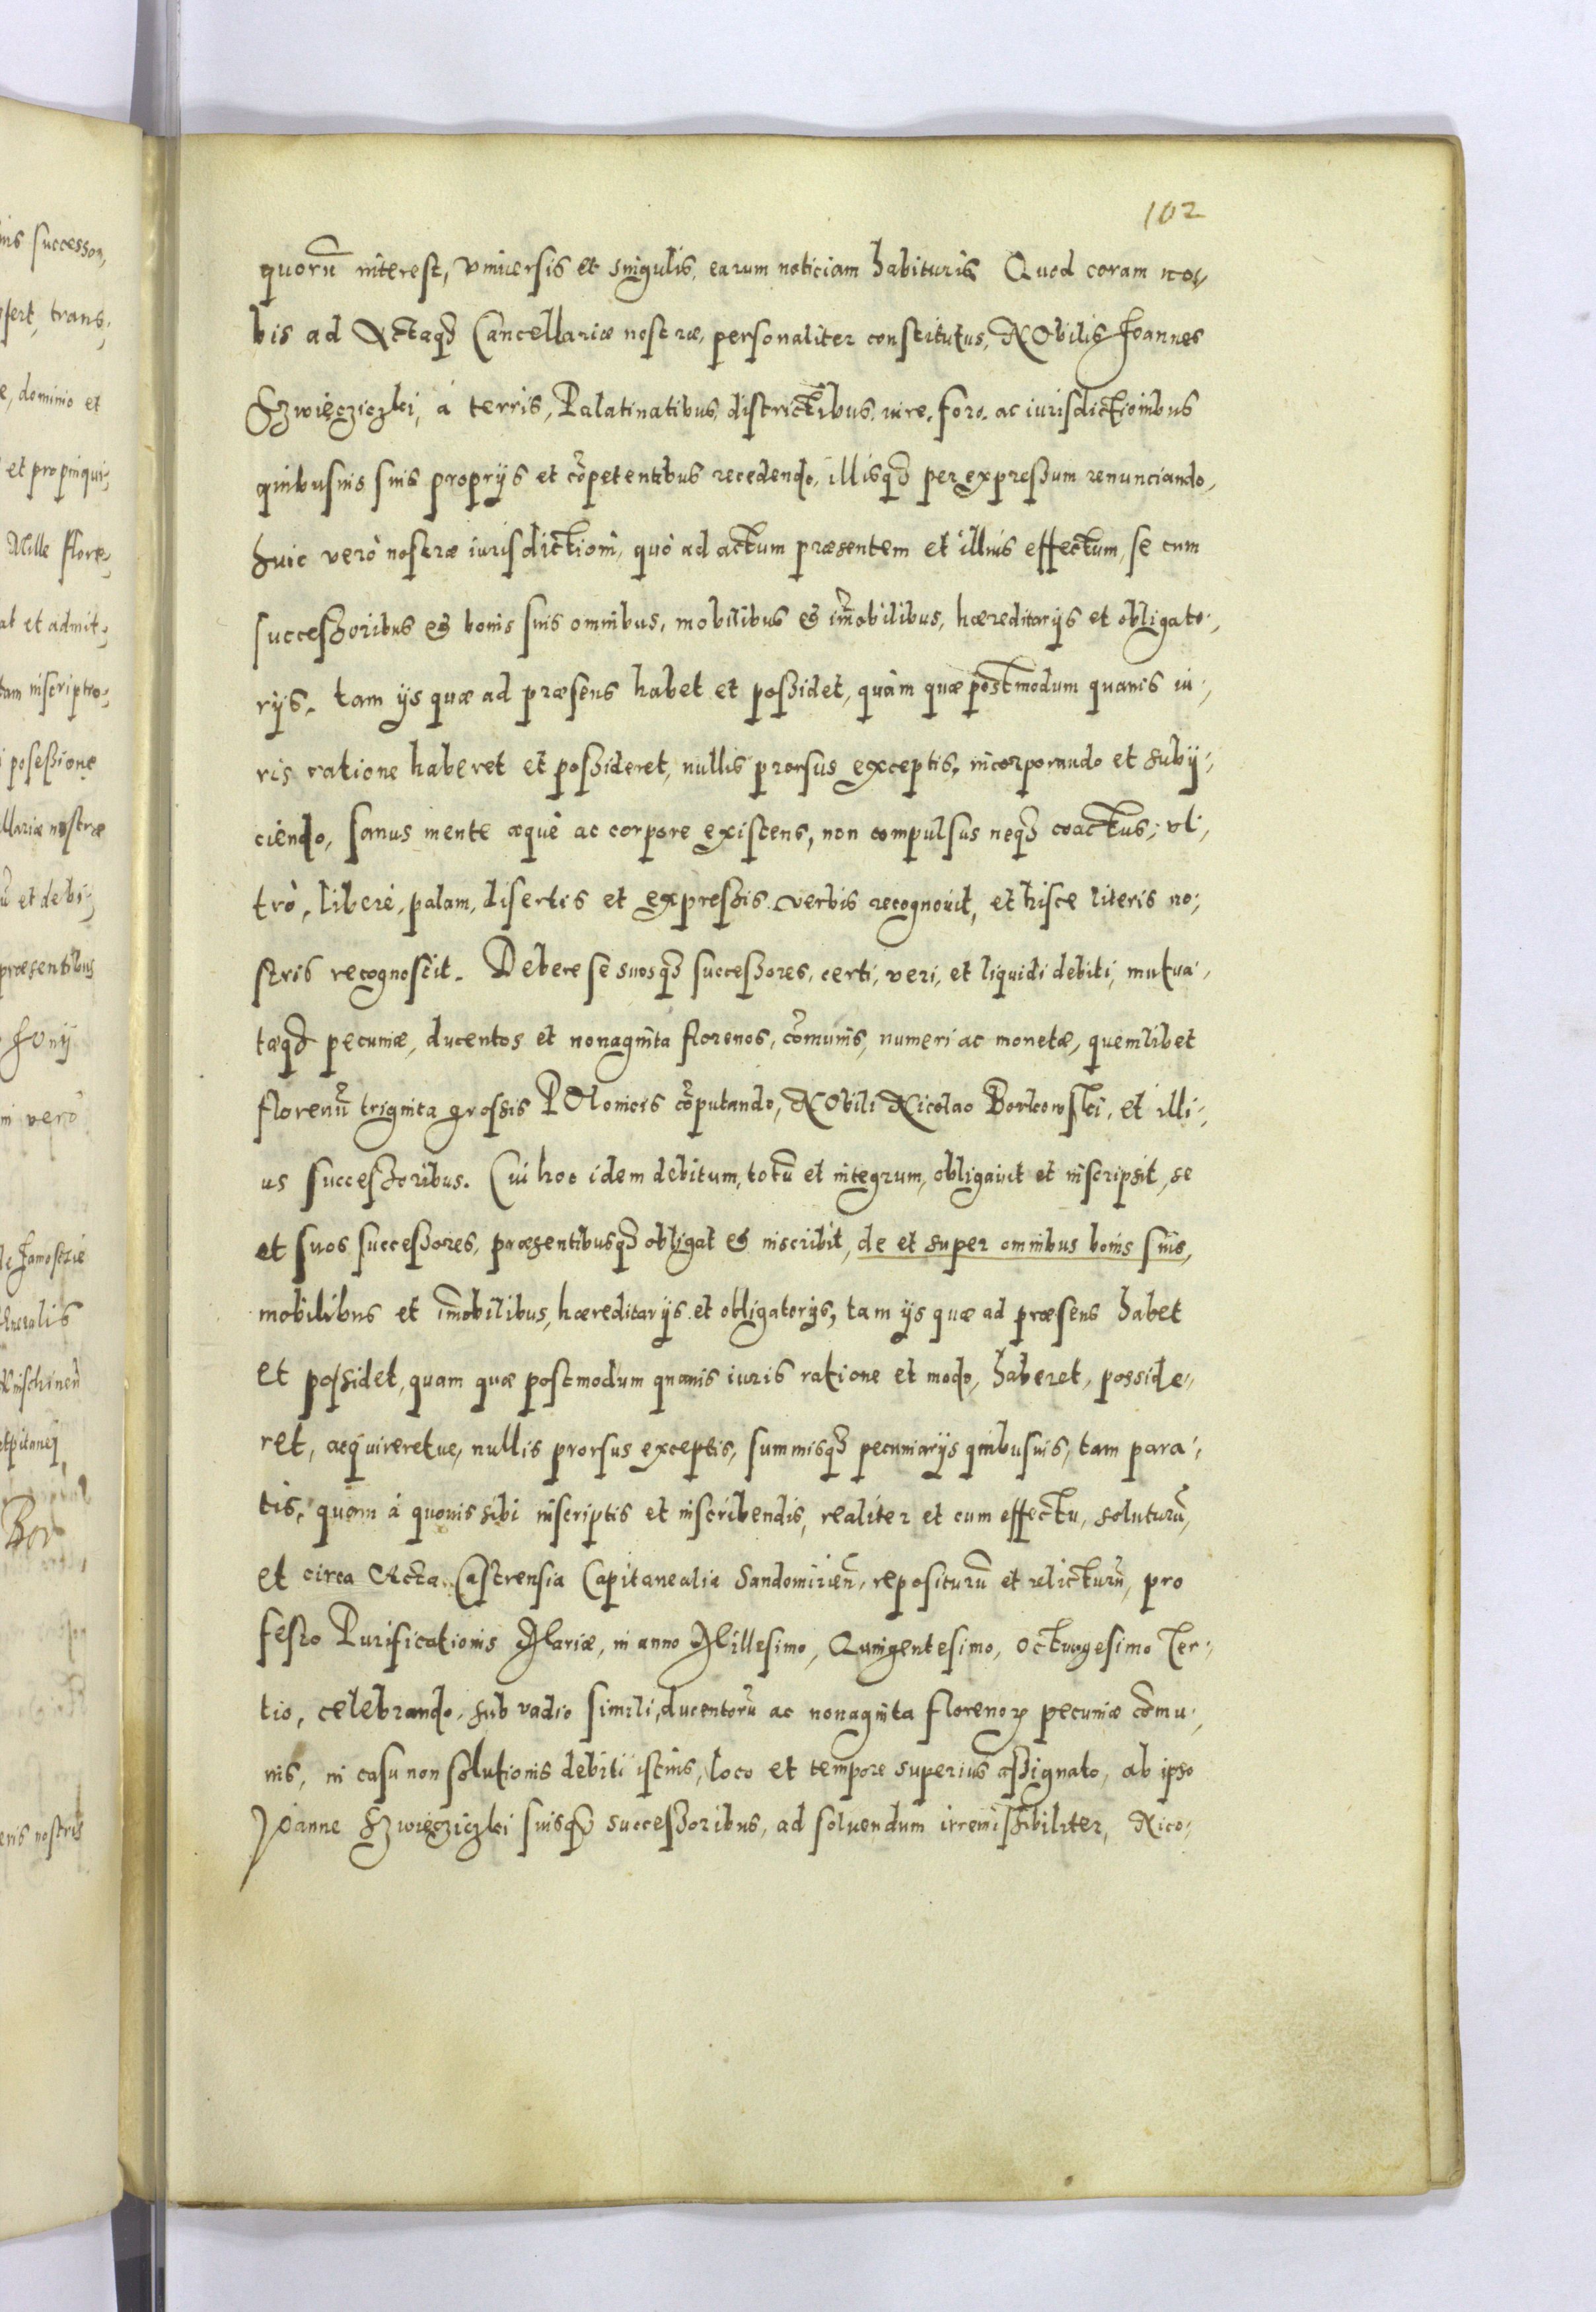 102
quorū interest, vniuersis et singulis, earum noticiam habituris Quod coram no,
bis ad Actaq3 Cancellariæ nostræ, personaliter constitutus, NObilis Joannes
Szwięcziczki, á terris, Palatinatibus, districtibus, iure, foro, ac iurisdictionibus
quibusuis suis proprijs et cōpetentibus recedendo, illisq3 per expressum renunciando,
huic verò nostræ iurisdictioni, quò ad actum præsentem et illius effectum, se cum
successoribus et bonis suis omnibus, mobilibus et im̄obilibus, hæreditarijs et obligato,
rijs, tam ijs quæ ad præsens habet et possidet, quàm quæ postmodum quauis iu,
ris ratione haberet et possideret, nullis prorsus exceptis, incorporando et subij,
ciendo, sanus mente æquè ac corpore existens, non compulsus neq3 coactus, vl,
trò, liberè, palam, disertis et expressis verbis recognouit, et hisce literis no,
stris recognoscit. Debere se suosq3 successores, certi, veri, et liquidi debiti, mutua,
tæq3 pecuniæ, ducentos et nonaginta florenos, cōmunis, numeri ac monetæ, quemlibet
florenū triginta grossis POlonicis cōputando, NObili Nicolao Borkowski, et illi,
us successoribus. Cui hoc idem debitum, totū et integrum, obligauit et inscripsit, se
et suos successores, præsentibusq3 obligat et inscribit, de et super omnibus bonis suis,
mobilibus et im̄obilibus, hæreditarijs et obligatorijs, tam ijs quæ ad præsens habet
et possidet, quam quæ postmodum quauis iuris ratione et modo, haberet, posside,
ret, acquireretue, nullis prorsus exceptis, summisq3 pecuniarijs quibusuis, tam para,
tis, quam á quouis sibi inscriptis et inscribendis, realiter et cum effectu, soluturū,
et circa Acta Castrensia Capitanealia Sandomirien̄, repositurū et relicturū, pro
festo Purificationis Mariæ, in anno Millesimo, Quingentesimo, octuagesimo Ter,
tio, celebrando, sub vadio simili, ducentorū ac nonaginta florenoꝝ pecuniæ cōmu,
nis, in casu non solutionis debiti istius, loco et tempore superius assignato, ab ipso
Joanne Szwięcziczki suisq3 successoribus, ad soluendum irremissibiliter, Nico,